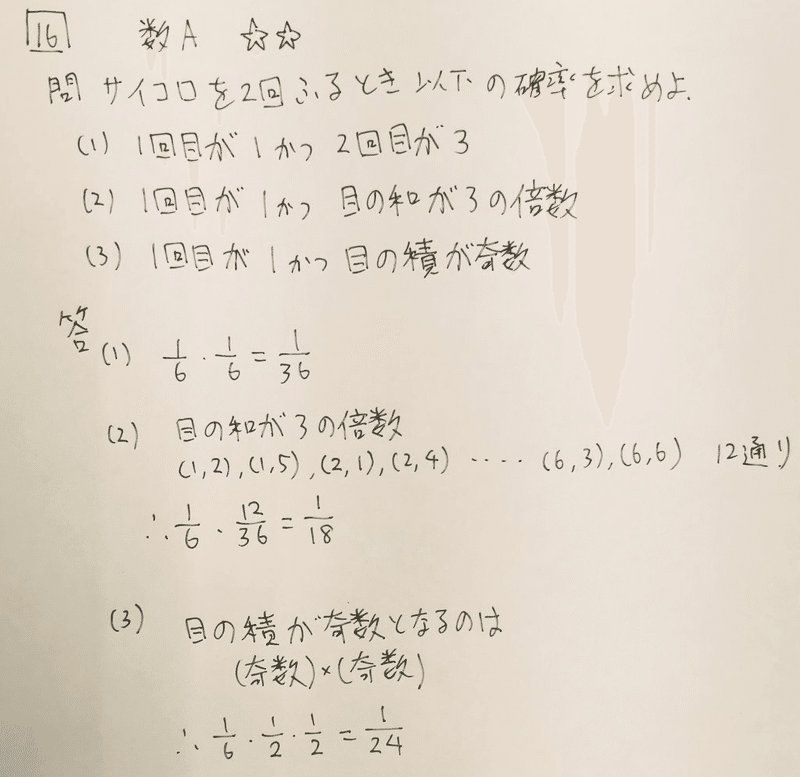 16 数A ☆☆
問 サイコロを2回ふるとき 以下の確率を求めよ.
(1) 1回目が1かつ 2回目が3
(2) 1回目が1かつ 目の和が3の倍数
(3) 1回目が1かつ目の積が奇数
答
(1) 1/6 · 1/6 = 1/36
(2) 目の和が3の倍数
(1,2),(1,5),(2,1),(2,4) ···· (6,3),(6,6) 12通り
∴ 1/6 · 12/36 = 1/18
(3) 目の積が奇数となるのは
(奇数)×(奇数)
∴ 1/6 · 1/2 · 1/2 = 1/24